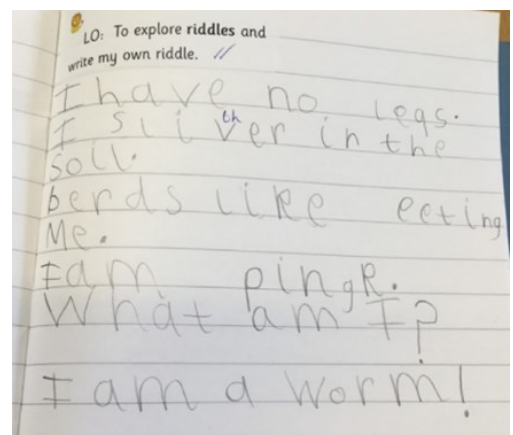 LO: To explore riddles and
write my own riddle. //
I have no legs.
I slither in the
soil.
berds like eeting
Me.
I am pingk.
What am I?
I am a worm!